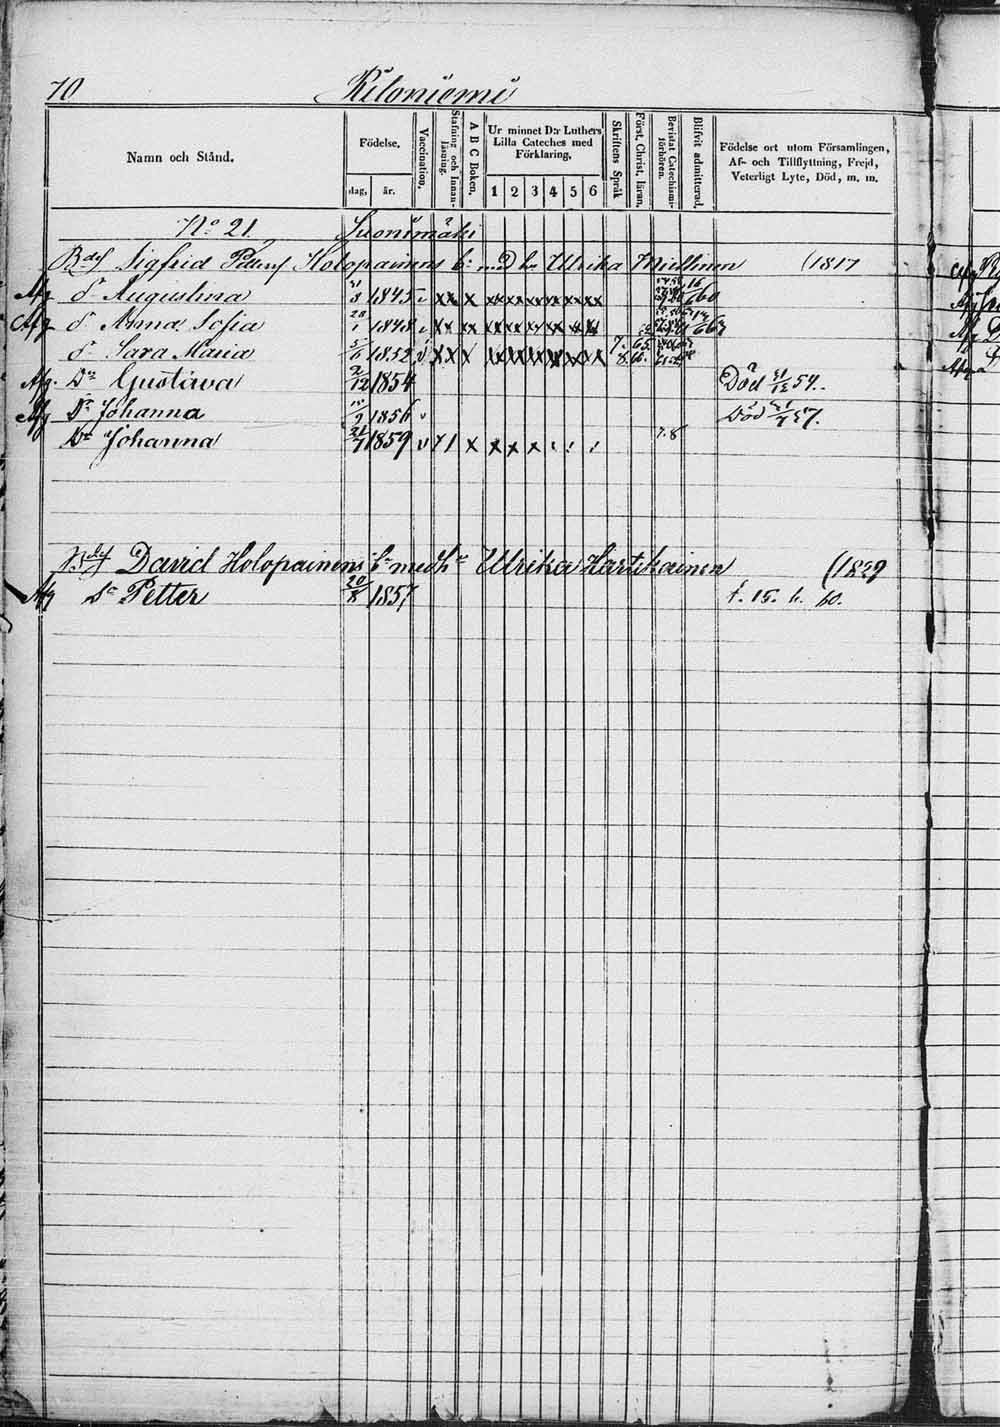 70 Kiloniemi
Namn och Stånd. Födelse. dag, år. Vaccination. Stafning och Innan-läsning. A B C Boken. Ur minnet D:r Luthers Lilla Cateches med Förklaring, 1 2 3 4 5 6 Skriftens Språk Först. Christ. läran. Bevistat Catechismi-förhören. Blifvit admitterad. Födelse ort utom Församlingen, Af- och Tillflyttning, Frejd, Veterligt Lyte, Död, m. m.
No 21. Suonimäki
Bdes Sigfrid Petterss Holopainens bn med hu Ulrika Miettinen (1817
Afg dr Augustina 1845 v x x x x x x x x x 60
Afg dr Anna Sofia 1848 v x x x x x x x x x 663
dr Sara Maria 5/6 1852 v x x x x x x x x x 7. 8. 65. 66.
Afg. Dr Gustava 2/12 1854 Död 31/12 54.
Afg Dr Johanna 1856 v Död 57.
Dr Johanna 1859 v x x x x 7.8
Bdes David Holopainens bn med hu Ulrika Hartikainen (1829
Afg Sn Petter 20/8 1857 t. 15. 6. 60.